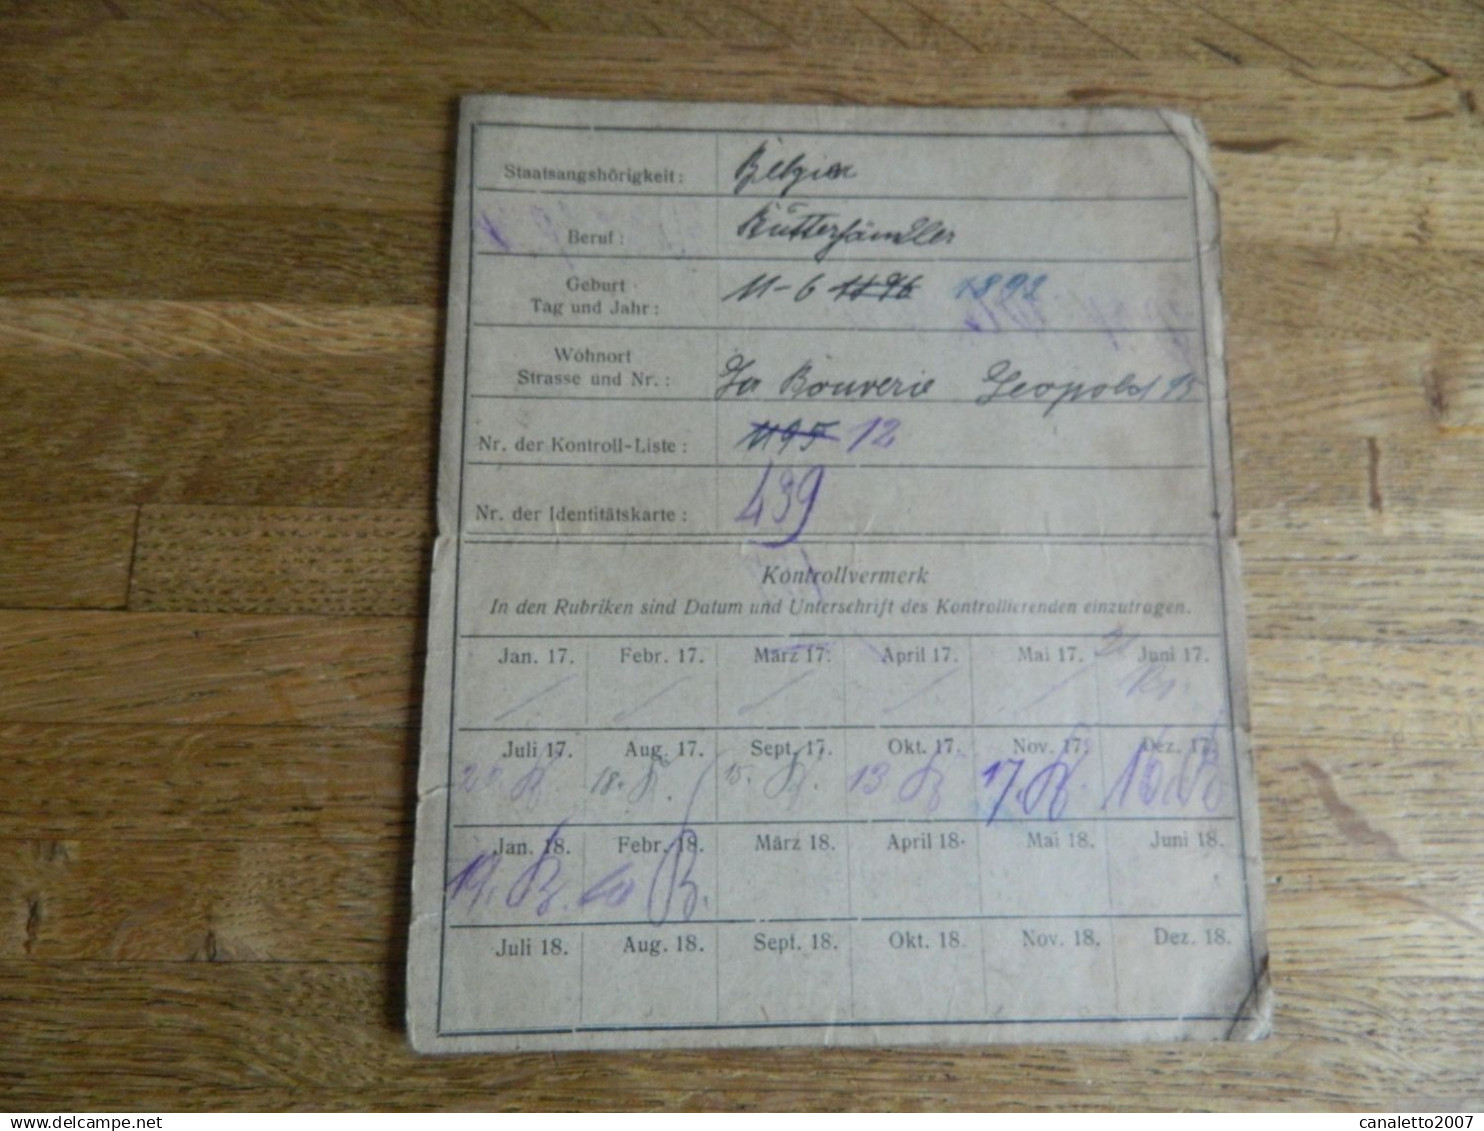 Staatsangshörigkeit: Belgier
Beruf: Butterhändler
Geburt
Tag und Jahr: 11-6 1892
Wohnort
Strasse und Nr.: La Bouverie Leopold 15
Nr. der Kontroll-Liste: 1195 12
Nr. der Identitätskarte: 439
Kontrollvermerk
In den Rubriken sind Datum und Unterschrift des Kontrollierenden einzutragen.
Jan. 17. Febr. 17. März 17. April 17. Mai 17. Juni 17.
Juli 17. Aug. 17. Sept. 17. Okt. 17. Nov. 17. Dez. 17.
18. 15. 13. 17. 16.
Jan. 18. Febr. 18. März 18. April 18. Mai 18. Juni 18.
19. B. B.
Juli 18. Aug. 18. Sept. 18. Okt. 18. Nov. 18. Dez. 18.
delcampe.net
canaletto2007